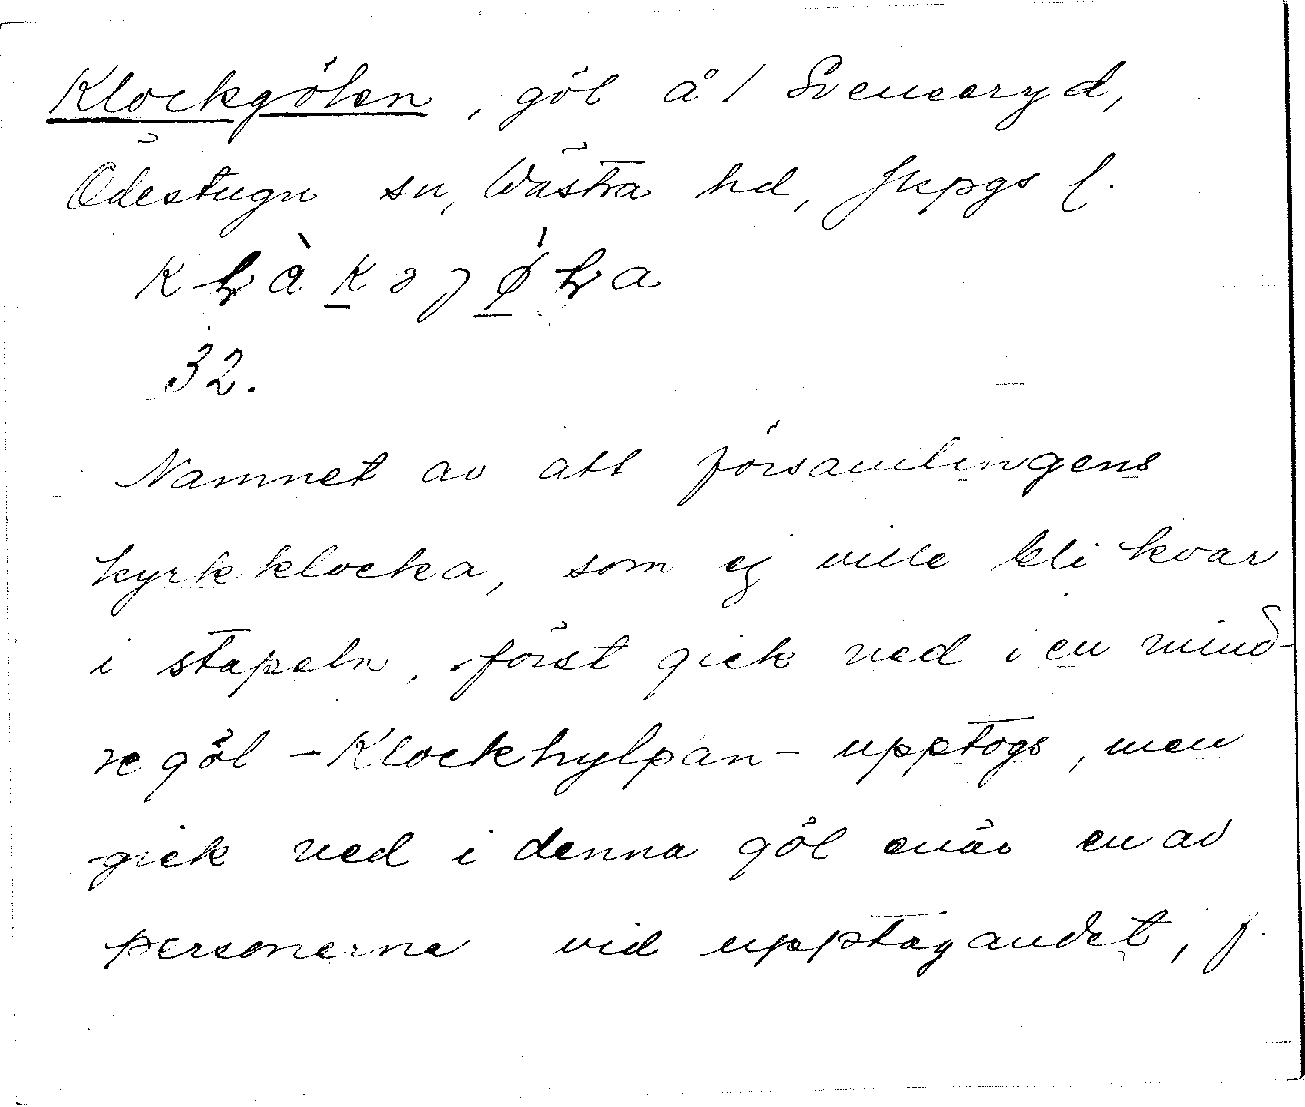 Klockgölen, göl å 1 Sveneryd,
Ödestugu sn, Västra hd, Jkpgs l.
32.
Namnet av att församlingens
kyrkklocka, som ej ville bli kvar
i stapeln, först gick ned i en mind-
re göl - Klockhylpan - upptogs, men
gick ned i denna göl enär en av
personerna vid upptagandet, f.